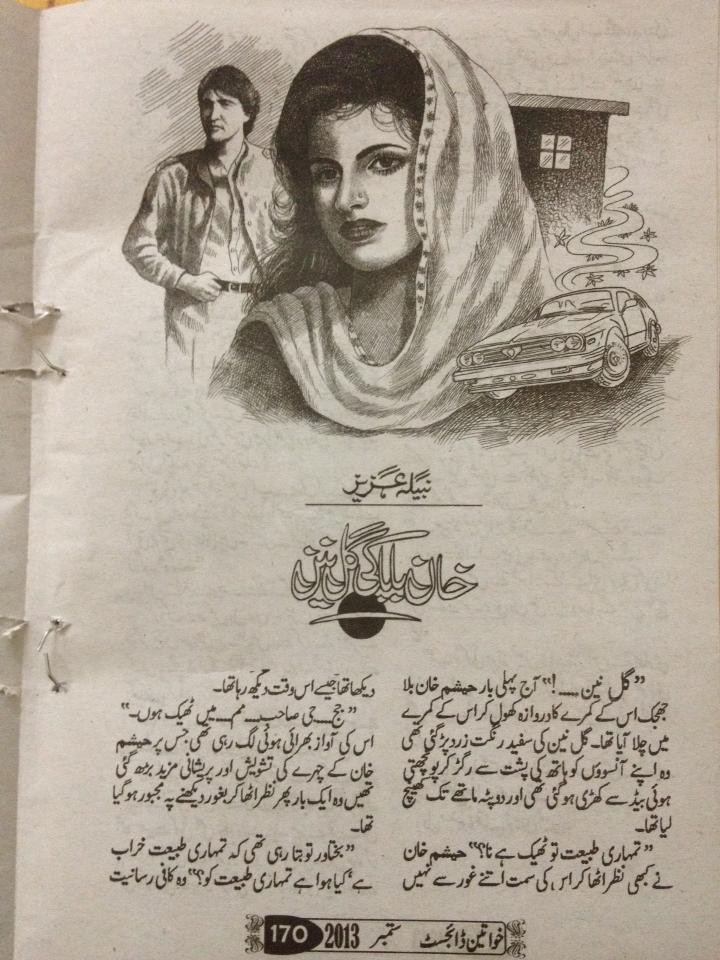 نبیلہ عزیز
خان بابا کی گل نین
”گل نین ..... !“ آج پہلی بار حیشم خان بلا
جھجک اس کے کمرے کا دروازہ کھول کر اس کے کمرے
میں چلا آیا تھا۔ گل نین کی سفید رنگت زرد پڑ گئی تھی
وہ اپنے آنسوؤں کو ہاتھ کی پشت سے رگڑ کر پونچھتی
ہوئی بیڈ سے کھڑی ہو گئی تھی اور دوپٹہ ماتھے تک کھینچ
لیا تھا۔
”تمہاری طبیعت تو ٹھیک ہے نا؟“ حیشم خان
نے کبھی نظر اٹھا کر اس کی سمت اتنے غور سے نہیں
دیکھا تھا جیسے اس وقت دیکھ رہا تھا۔
”جج....جی صاحب....مم....میں ٹھیک ہوں۔“
اس کی آواز بھرائی ہوئی لگ رہی تھی جس پر حیشم
خان کے چہرے کی تشویش اور پریشانی مزید بڑھ گئی
تھیں وہ ایک بار پھر نظر اٹھا کر بغور دیکھنے پہ مجبور ہو گیا
تھا۔
”بختاور تو بتا رہی تھی کہ تمہاری طبیعت خراب
ہے، کیا ہوا ہے تمہاری طبیعت کو؟“ وہ کافی رسانیت
خواتین ڈائجسٹ ستمبر 2013 170